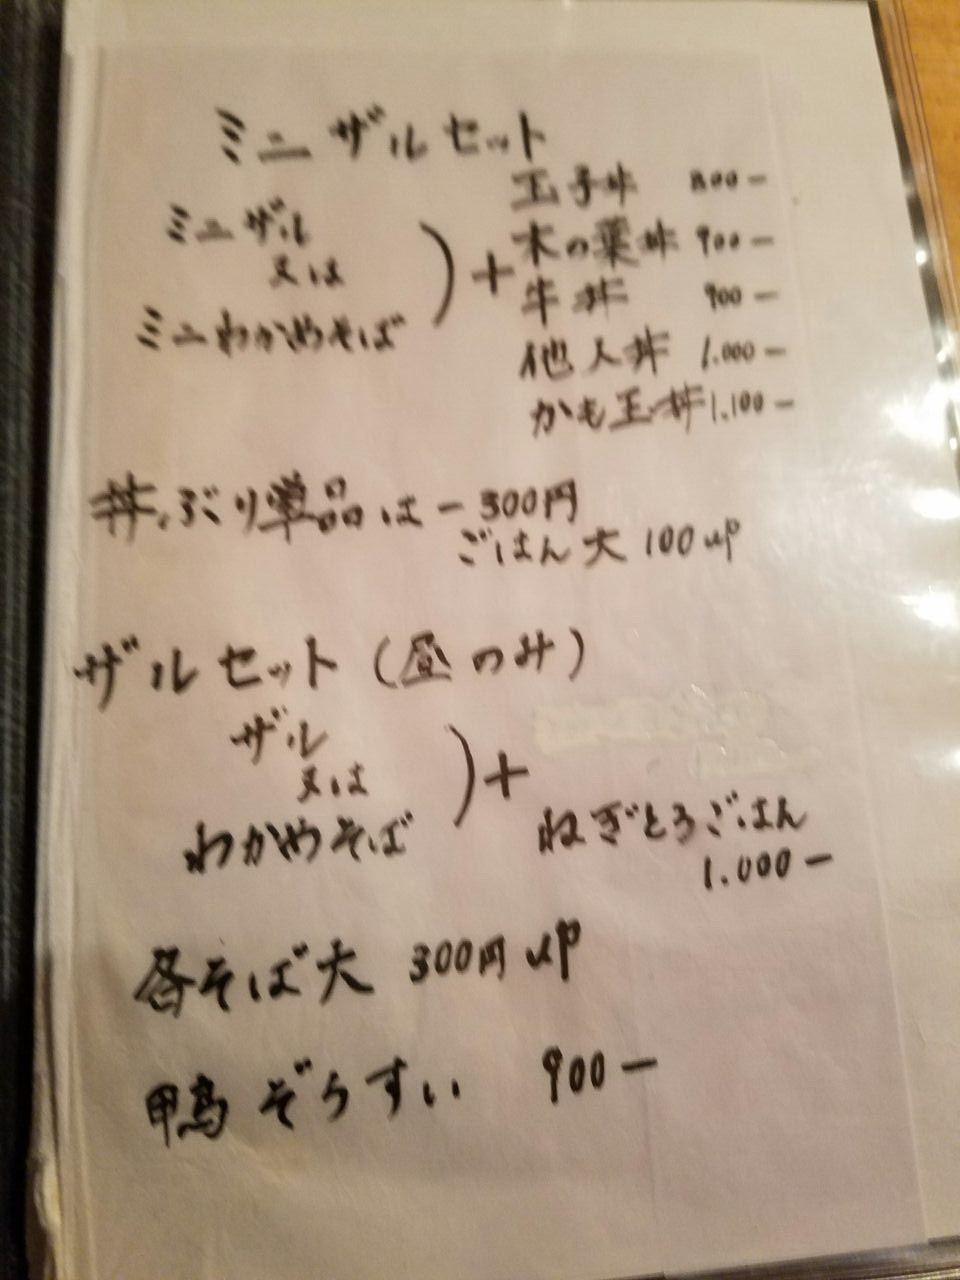 ミニザルセット
ミニザル
又は
ミニわかめそば
)+
玉子丼 800-
木の葉丼 900-
牛丼 900-
他人丼 1.000-
かも玉丼 1.100-
丼ぶり単品は-300円
ごはん大 100up
ザルセット(昼のみ)
ザル
又は
わかめそば
)+
ねぎとろごはん
1.000-
各そば大 300円up
鴨ぞうすい 900-